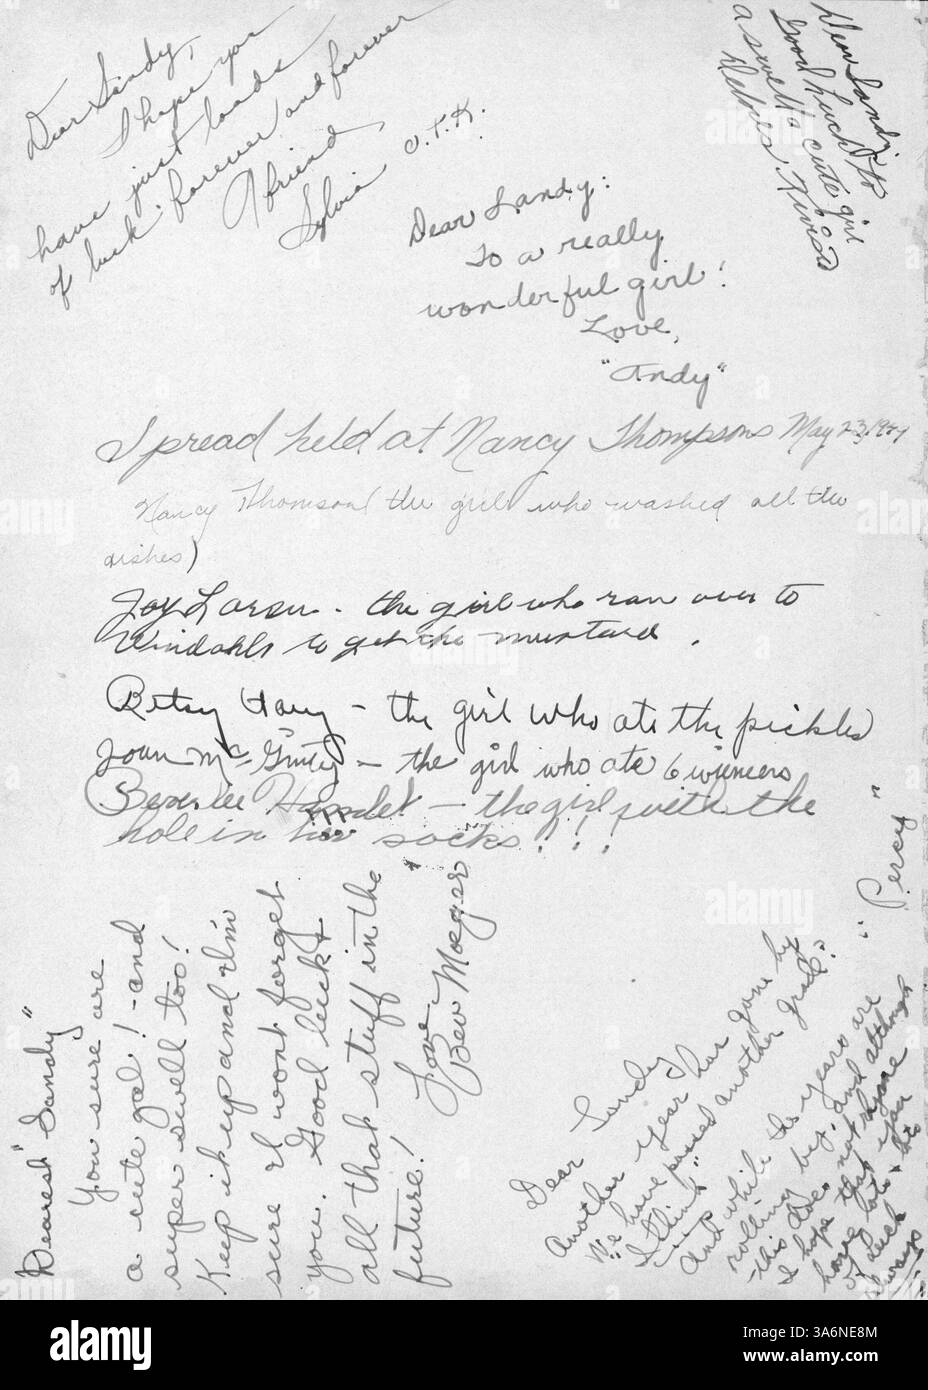 Dear Sandy,
I hope you
have just loads
of luck forever and forever
A friend,
Sylvia O.T.K.
Dear Sandy:
Good luck to
a swell & cute girl
Delores
Dear Sandy:
To a really
wonderful girl!
Love,
"Andy"
Spread held at Nancy Thompsons May 23, 19
Nancy Thomson (the girl who washed all the
dishes)
Joy Larsen - the girl who ran over to
Windahls to get the mustard.
Betsy - the girl who ate the pickles
Joan McGinty - the girl who ate 6 wieners
Beverlee - the girl with the
hole in her socks!!!
Dearest "Sandy"
You sure are
a cute gal! - and
super swell too!
Keep it up and I'm
sure I wont forget
you. Good luck &
all that stuff in the
future!
Love
Bev Moeger
Dear Sandy
Another year has gone by
We have passed another grade,
"I think"
And while the years are
rolling by, and although
this does not rhyme
I hope that you
have lots
of luck
always
"Percy"
alamy
Image ID: 3A6NE8M
www.alamy.com